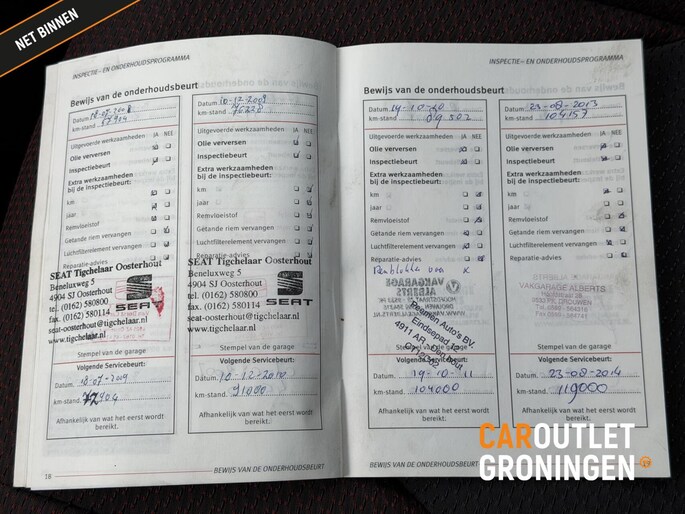 NET BINNEN
INSPECTIE- EN ONDERHOUDSPROGRAMMA
Bewijs van de onderhoudsbeurt
Datum 18-07-2008
km-stand 57904
Uitgevoerde werkzaamheden JA NEE
Olie verversen
Inspectiebeurt
Extra werkzaamheden
bij de inspectiebeurt:
km
jaar
Remvloeistof
Getande riem vervangen
Luchtfilterelement vervangen
Reparatie-advies
SEAT Tigchelaar Oosterhout
Beneluxweg 5
4904 SJ Oosterhout
tel. (0162) 580800
fax. (0162) 580114
seat-oosterhout@tigchelaar.nl
www.tigchelaar.nl
SEAT
Stempel van de garage
Volgende Servicebeurt:
Datum 18-07-2009
km-stand. 72904
Afhankelijk van wat het eerst wordt
bereikt.
18
Datum 10-12-2009
km-stand 76220
Uitgevoerde werkzaamheden JA NEE
Olie verversen
Inspectiebeurt
Extra werkzaamheden
bij de inspectiebeurt:
km
jaar
Remvloeistof
Getande riem vervangen
Luchtfilterelement vervangen
Reparatie-advies
SEAT Tigchelaar Oosterhout
Beneluxweg 5
4904 SJ Oosterhout
tel. (0162) 580800
fax. (0162) 580114
seat-oosterhout@tigchelaar.nl
www.tigchelaar.nl
SEAT
Stempel van de garage
Volgende Servicebeurt:
Datum. 10-12-2010
km-stand. 91000
Afhankelijk van wat het eerst wordt
bereikt.
BEWIJS VAN DE ONDERHOUDSBEURT
INSPECTIE- EN ONDERHOUDSPROGRAMMA
Bewijs van de onderhoudsbeurt
Datum 19-10-10
km-stand 89502
Uitgevoerde werkzaamheden JA NEE
Olie verversen
Inspectiebeurt
Extra werkzaamheden
bij de inspectiebeurt:
km
jaar
Remvloeistof
Getande riem vervangen
Luchtfilterelement vervangen
Reparatie-advies
VAKGARAGE
ALBERTS
Auto's BV.
Eindsepad 12
4911 AR
Stempel van de garage
Volgende Servicebeurt:
Datum. 19-10-11
km-stand. 104000
Afhankelijk van wat het eerst wordt
bereikt.
Datum 23-08-2013
km-stand 104157
Uitgevoerde werkzaamheden JA NEE
Olie verversen
Inspectiebeurt
Extra werkzaamheden
bij de inspectiebeurt:
km
jaar
Remvloeistof
Getande riem vervangen
Luchtfilterelement vervangen
Reparatie-advies
VAKGARAGE ALBERTS
Stempel van de garage
Volgende Servicebeurt:
Datum. 23-08-2014
km-stand. 119000
Afhankelijk van wat het eerst wordt
bereikt.
BEWIJS VAN DE ONDERHOUDSBEURT
CAROUTLET
GRONINGEN